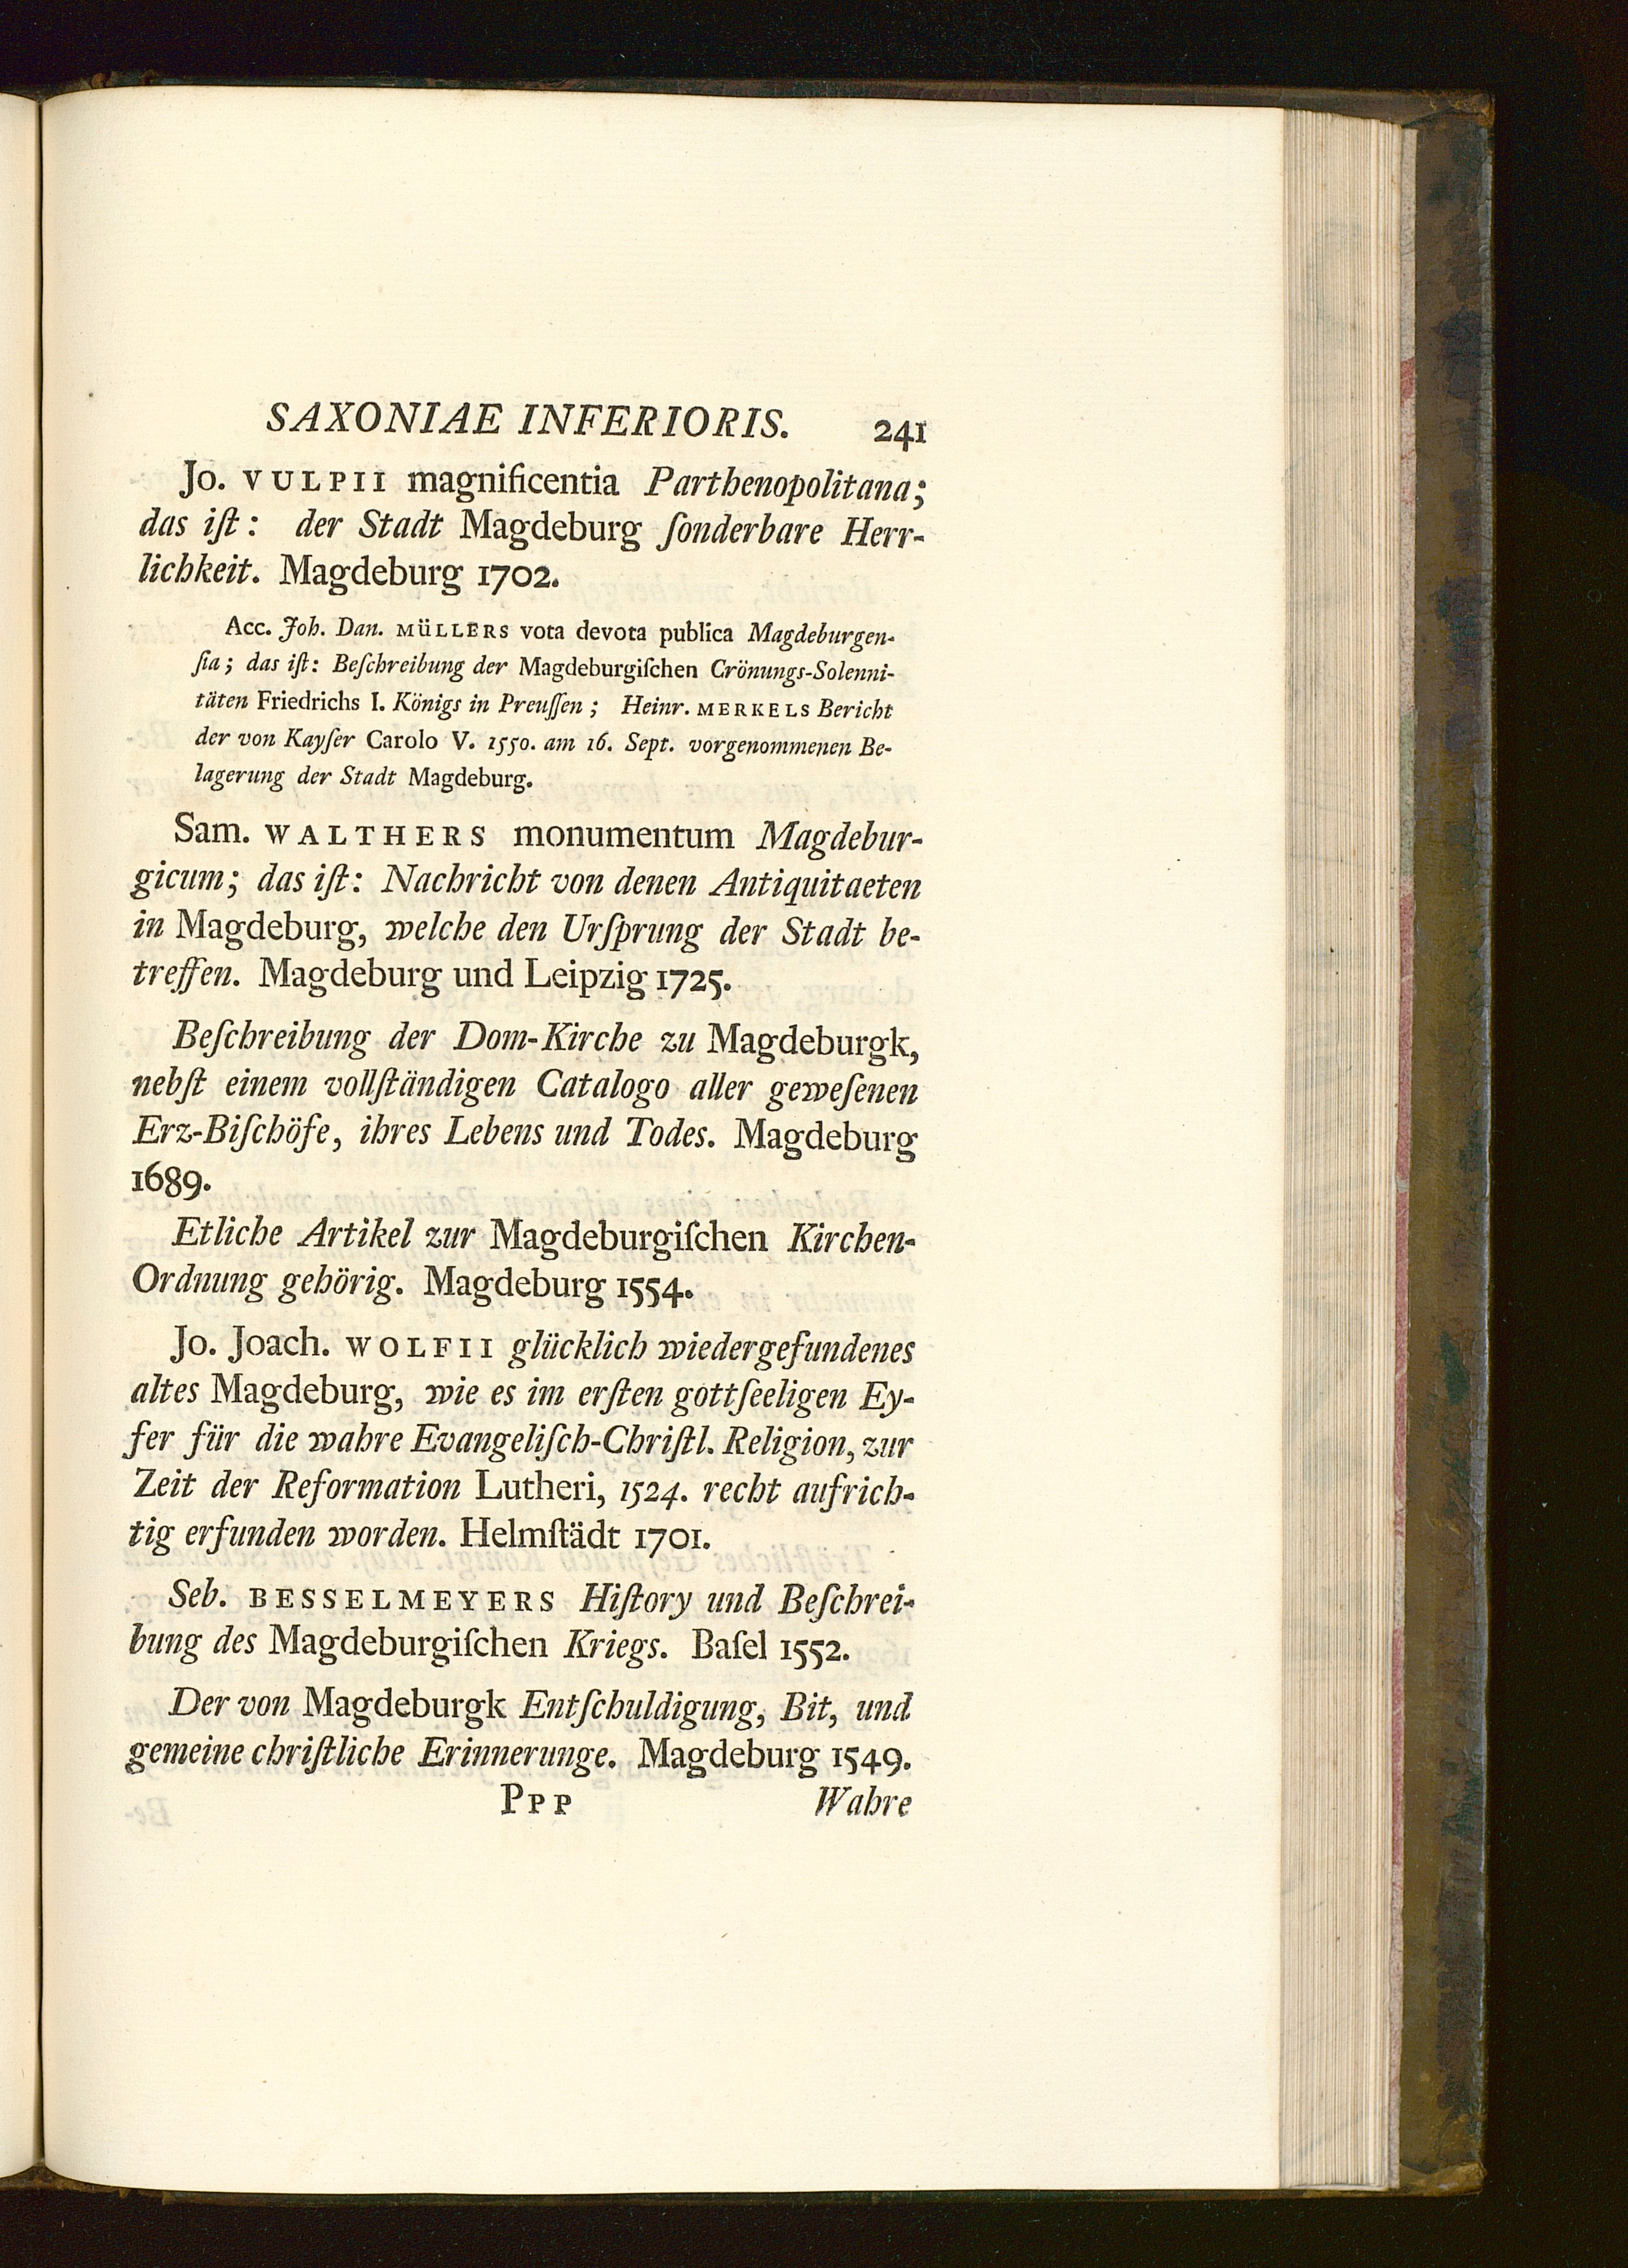 SAXONIAE INFERIORIS. 241
Jo. VULPII magnificentia Parthenopolitana;
das iſt: der Stadt Magdeburg ſonderbare Herr-
lichkeit. Magdeburg 1702.
Acc. Joh. Dan. MüLLERS vota devota publica Magdeburgen-
ſia; das iſt: Beſchreibung der Magdeburgiſchen Crönungs-Solenni-
täten Friedrichs I. Königs in Preuſſen; Heinr. MERKELS Bericht
der von Kayſer Carolo V. 1550. am 16. Sept. vorgenommenen Be-
lagerung der Stadt Magdeburg.
Sam. WALTHERS monumentum Magdebur-
gicum; das iſt: Nachricht von denen Antiquitaeten
in Magdeburg, welche den Urſprung der Stadt be-
treffen. Magdeburg und Leipzig 1725.
Beſchreibung der Dom-Kirche zu Magdeburgk,
nebſt einem vollſtändigen Catalogo aller geweſenen
Erz-Biſchöfe, ihres Lebens und Todes. Magdeburg
1689.
Etliche Artikel zur Magdeburgiſchen Kirchen-
Ordnung gehörig. Magdeburg 1554.
Jo. Joach. WOLFII glücklich wiedergefundenes
altes Magdeburg, wie es im erſten gottſeeligen Ey-
fer für die wahre Evangeliſch-Chriſtl. Religion, zur
Zeit der Reformation Lutheri, 1524. recht aufrich-
tig erfunden worden. Helmſtädt 1701.
Seb. BESSELMEYERS Hiſtory und Beſchrei-
bung des Magdeburgiſchen Kriegs. Baſel 1552.
Der von Magdeburgk Entſchuldigung, Bit, und
gemeine chriſtliche Erinnerunge. Magdeburg 1549.
PPP Wahre